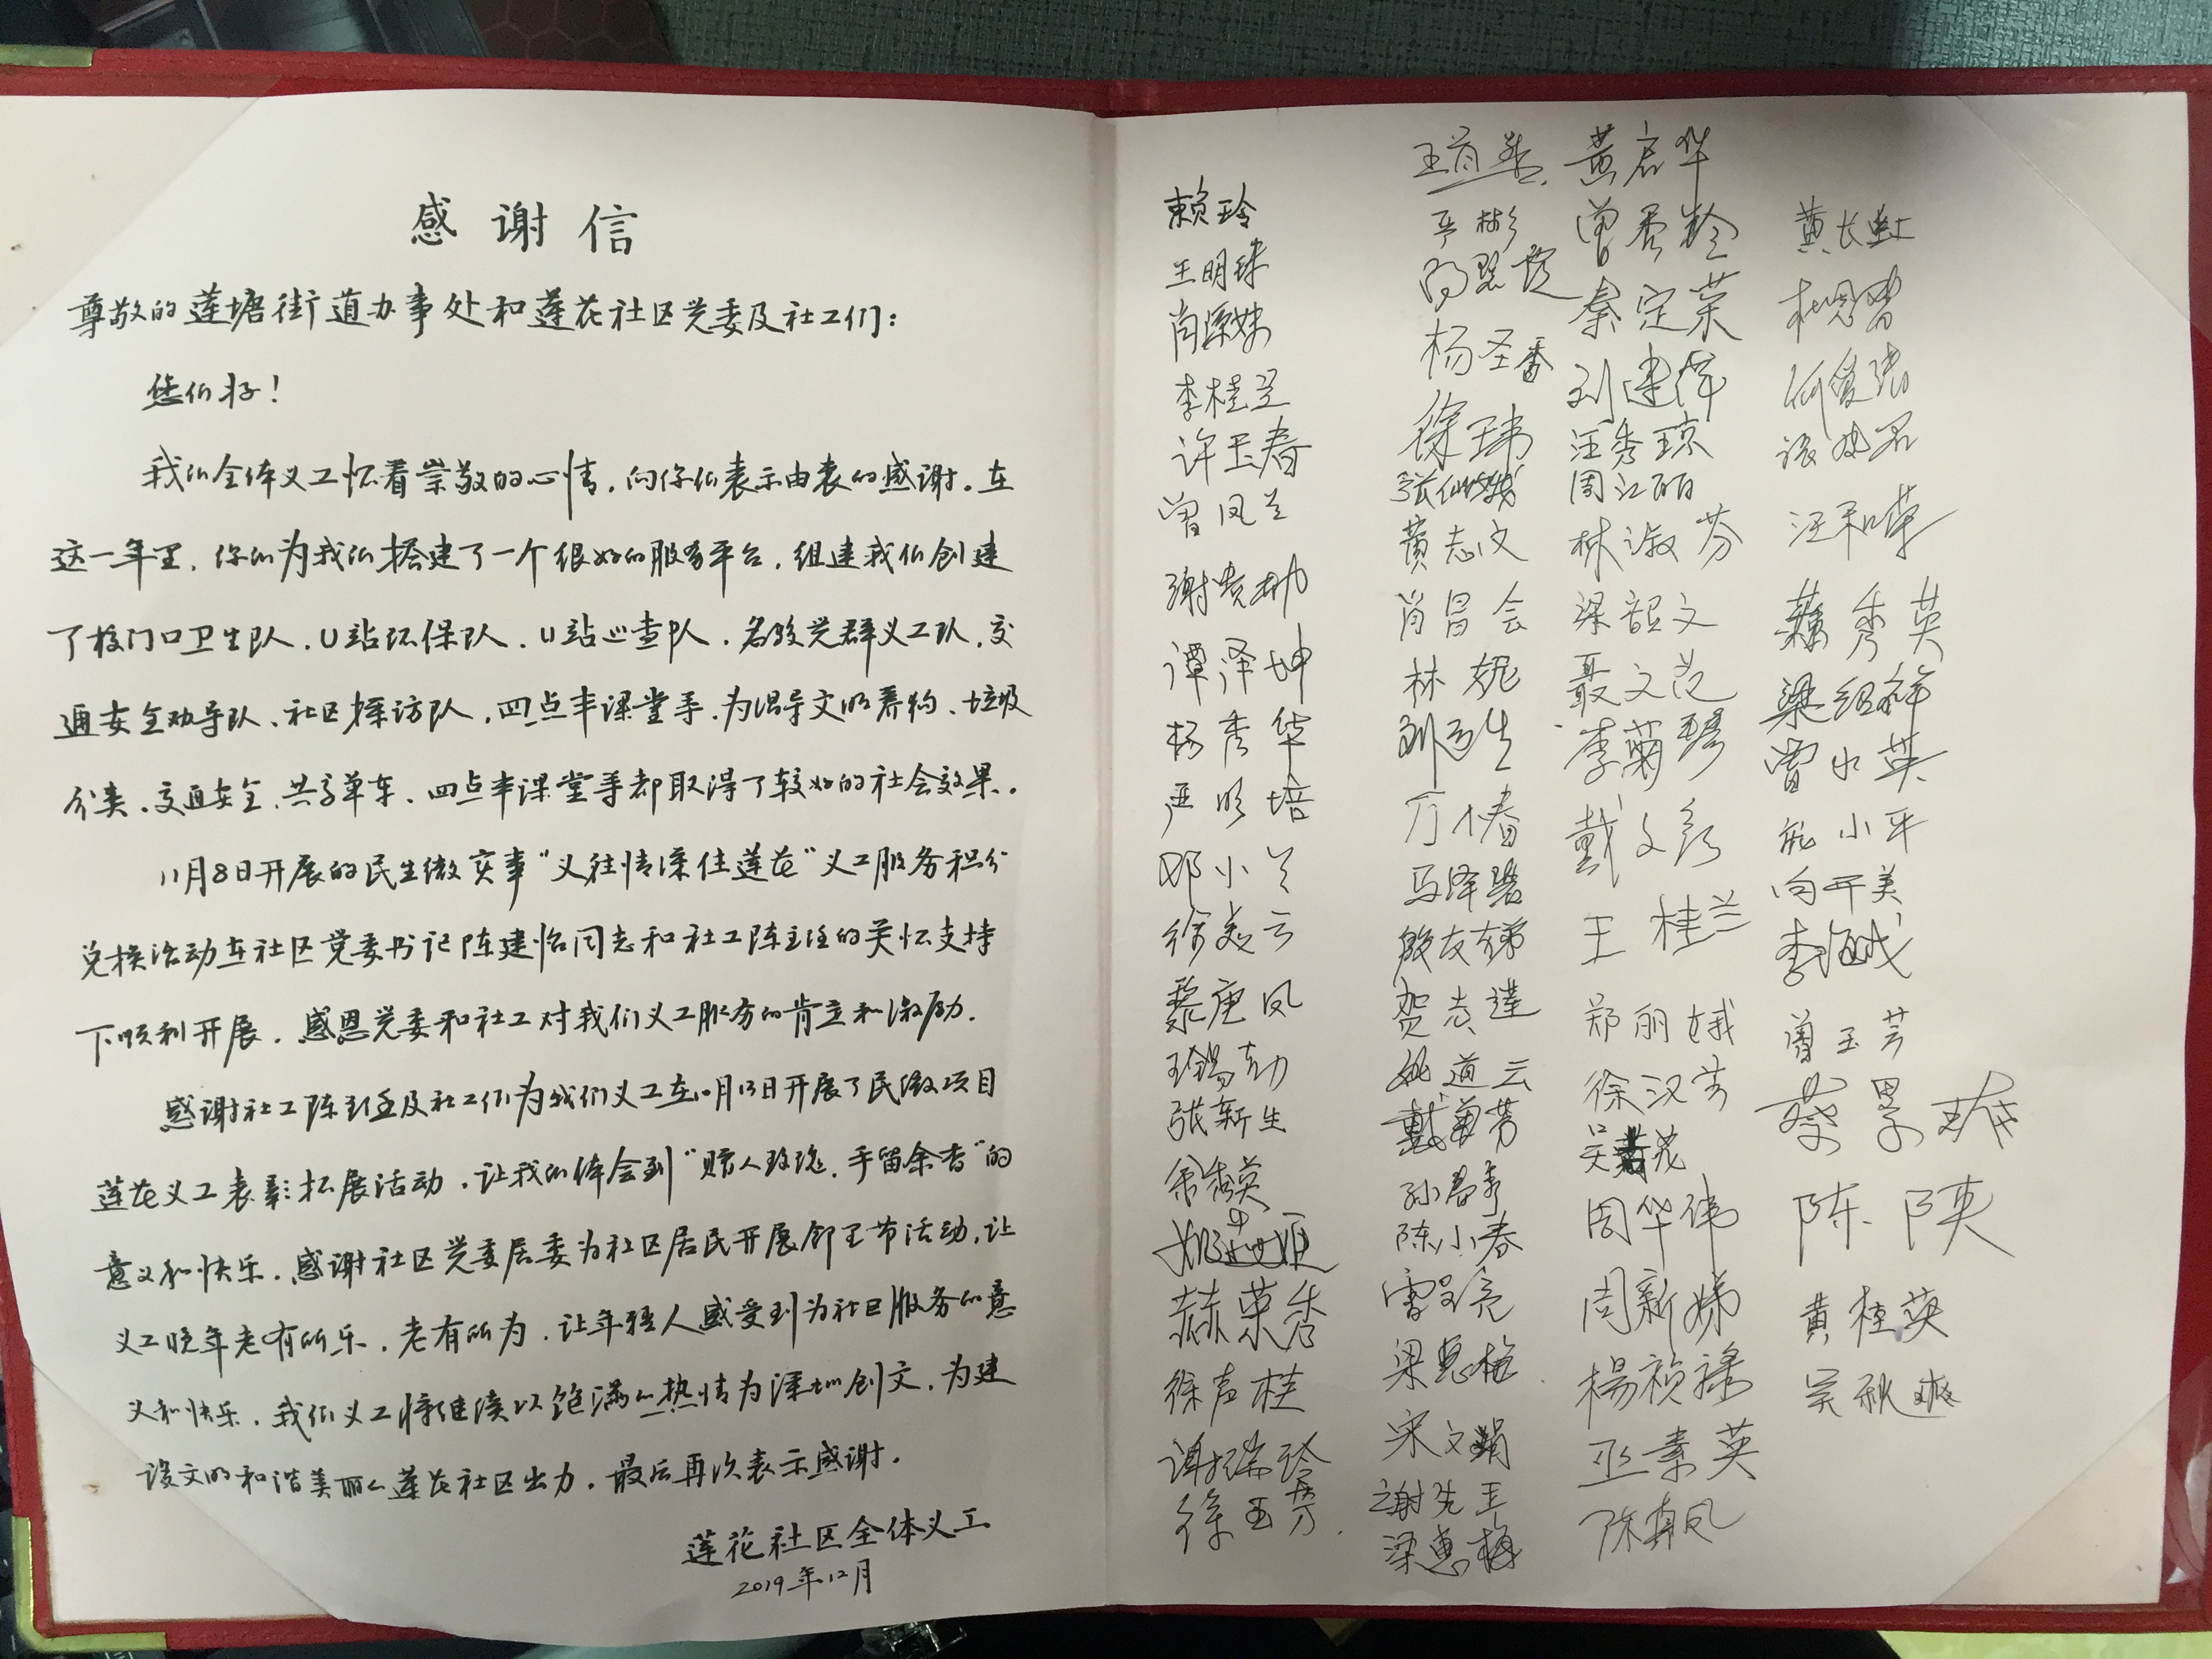 感谢信
尊敬的莲塘街道办事处和莲花社区党委及社工们：
您们好！
我们全体义工怀着崇敬的心情，向你们表示由衷的感谢。在
这一年里，你们为我们搭建了一个很好的服务平台，组建我们创建
了校门口卫生队、U站环保队、U站巡查队、名骏党群义工队、交
通安全劝导队、社区探访队，四点半课堂等，为倡导文明养狗、垃圾
分类、交通安全、共享单车、四点半课堂等都取得了较好的社会效果。
11月8日开展的民生微实事“义往情深住莲花”义工服务积分
兑换活动在社区党委书记陈建怡同志和社工陈主任的关怀支持
下顺利开展，感恩党委和社工对我们义工服务的肯定和激励。
感谢社工陈主任及社工们为我们义工在10月13日开展了民微项目
莲花义工表彰拓展活动，让我们体会到“赠人玫瑰，手留余香”的
意义和快乐，感谢社区党委居委为社区居民开展邻里节活动，让
义工晚年老有所乐，老有所为，让年轻人感受到为社区服务的意
义和快乐，我们义工将继续以饱满的热情为深圳创文，为建
设文明和谐美丽的莲花社区出力，最后再次表示感谢。
莲花社区全体义工
2019年12月
赖玲
王明珠
李桂兰
许玉春
曾凤兰
谭泽坤
杨秀华
严明培
邓小兰
徐美云
黎庚凤
张新生
余秀英
赫荣秀
徐声桂
谢瑞玲
徐玉芳
杨圣香
徐玮
张仙娥
黄志文
肖昌会
林妮
万椿
马泽碧
殷友娣
贺志莲
姚道云
戴菊芳
孙昌秀
陈小春
梁思梅
宋文娟
谢先王
梁惠梅
黄启华
曾秀玲
秦定荣
刘建萍
汪秀琼
周江丽
林淑芬
梁韶文
聂文范
李菊琴
王桂兰
郑丽娥
徐汉芳
周华伟
周新娣
楊祯禄
巫素英
陈朝凤
黄长虹
汪和荣
藕秀英
梁绍祥
曾水英
熊小平
向开美
曾玉芳
蔡景雄
陈陕
黄桂英
吴秋嫦